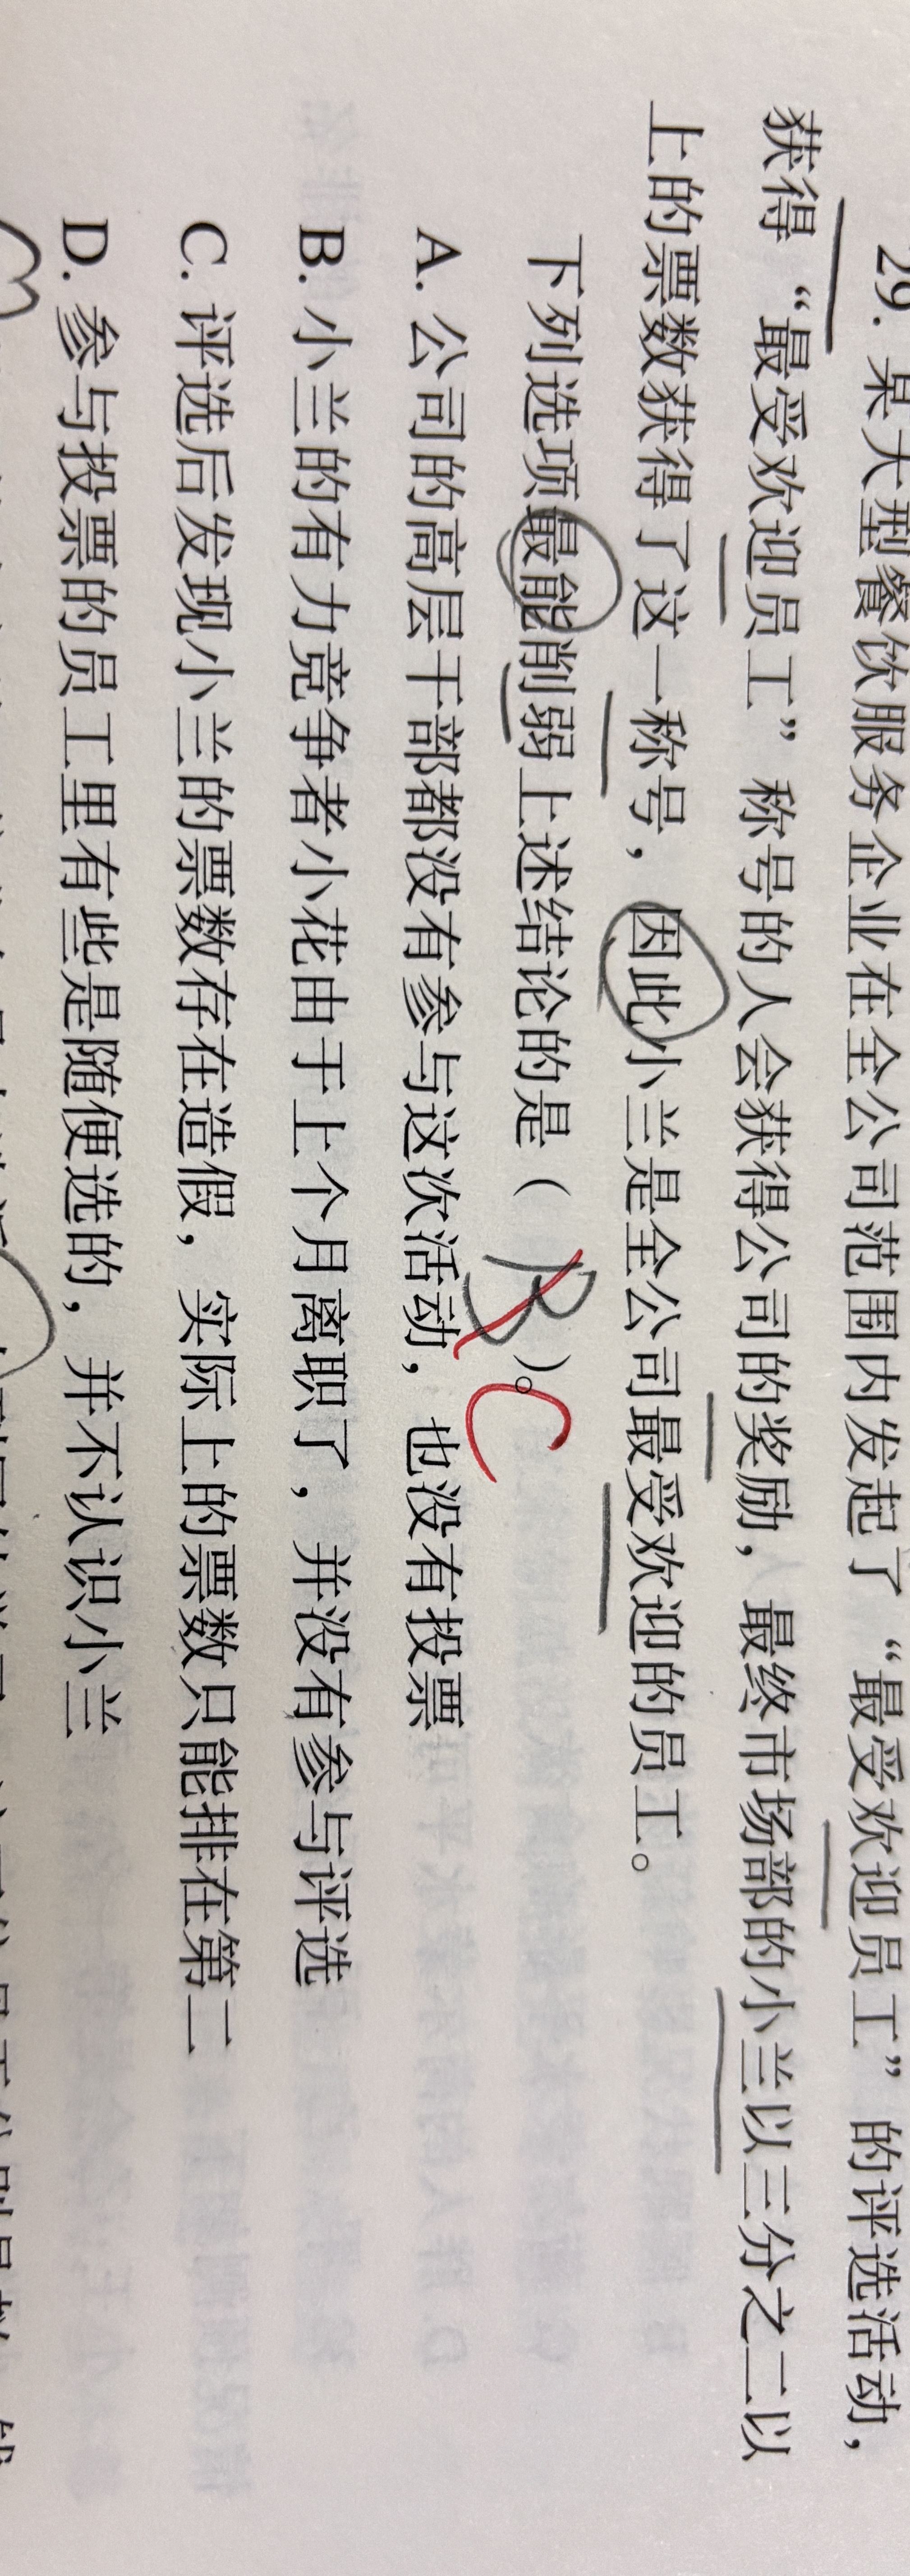 29. 某大型餐饮服务企业在全公司范围内发起了“最受欢迎员工”的评选活动，
获得“最受欢迎员工”称号的人会获得公司的奖励，最终市场部的小兰以三分之二以
上的票数获得了这一称号，因此小兰是全公司最受欢迎的员工。
下列选项最能削弱上述结论的是（ B ）。C
A. 公司的高层干部都没有参与这次活动，也没有投票
B. 小兰的有力竞争者小花由于上个月离职了，并没有参与评选
C. 评选后发现小兰的票数存在造假，实际上的票数只能排在第二
D. 参与投票的员工里有些是随便选的，并不认识小兰